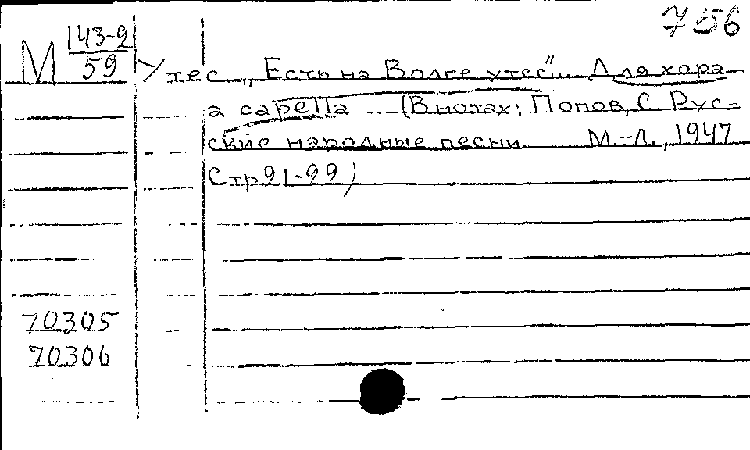 756
М 143-9
59
Утес „Есть на Волге утес". Для хора
a capella (В нотах: Попов, С. Рус-
ские народные песни. М.-Л., 1947
Стр 91-99)
70305
70306